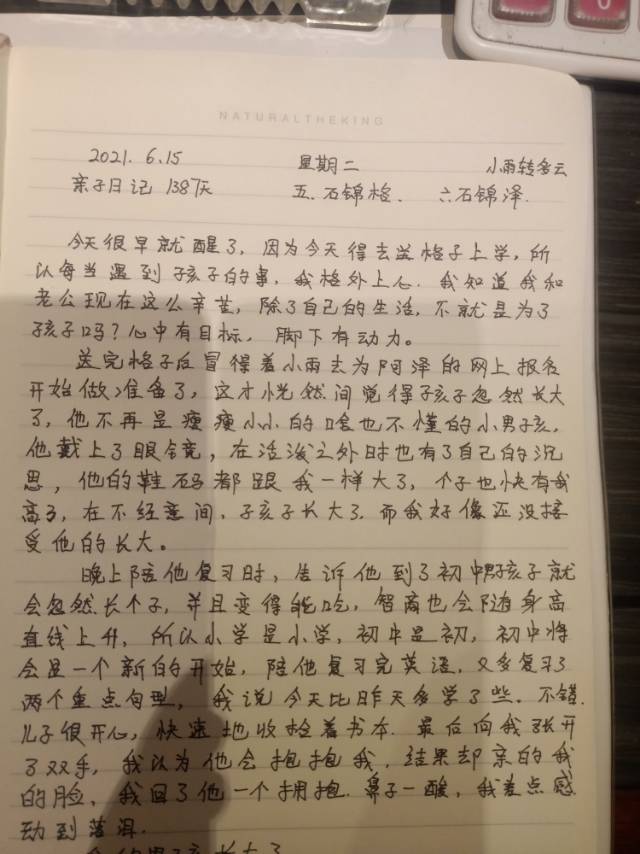 NATURALTHEKING
2021. 6.15 星期二 小雨转多云
亲子日记 1387天 五.石锦格. 六石锦泽.
今天很早就醒了,因为今天得去送格子上学,所
以每当遇到孩子的事,我格外上心.我知道我和
老公现在这么辛苦,除了自己的生活,不就是为了
孩子吗?心中有目标,脚下有动力。
送完格子后冒得着小雨去为阿泽的网上报名
开始做准备了,这才恍然间觉得孩子忽然长大
了,他不再是瘦瘦小小的啥也不懂的小男孩,
他戴上了眼镜,在活泼之外时也有了自己的沉
思,他的鞋码都跟我一样大了,个子也快有我
高了,在不经意间,孩子长大了.而我好像还没接
受他的长大。
晚上陪他复习时,告诉他到了初中男孩子就
会忽然长个子,并且变得能吃,智商也会随身高
直线上升,所以小学是小学,初中是初,初中将
会是一个新的开始,陪他复习完英语,又多复习了
两个重点句型,我说今天比昨天多学了些.不错.
儿子很开心,快速地收拾着书本.最后向我张开
了双手,我认为他会抱抱我,结果却亲的我
的脸,我回了他一个拥抱.鼻子一酸,我差点感
动到落泪.
男孩长大了